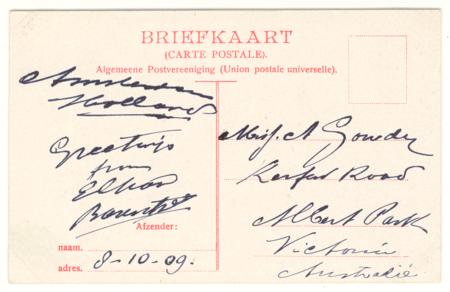 BRIEFKAART
(CARTE POSTALE).
Algemeene Postvereeniging (Union postale universelle).
Amsterdam
Holland
Greetings
from
Afzender:
naam.
adres. 8-10-09.
Miss. A
Kerferd Road
Albert Park
Victoria
Australië